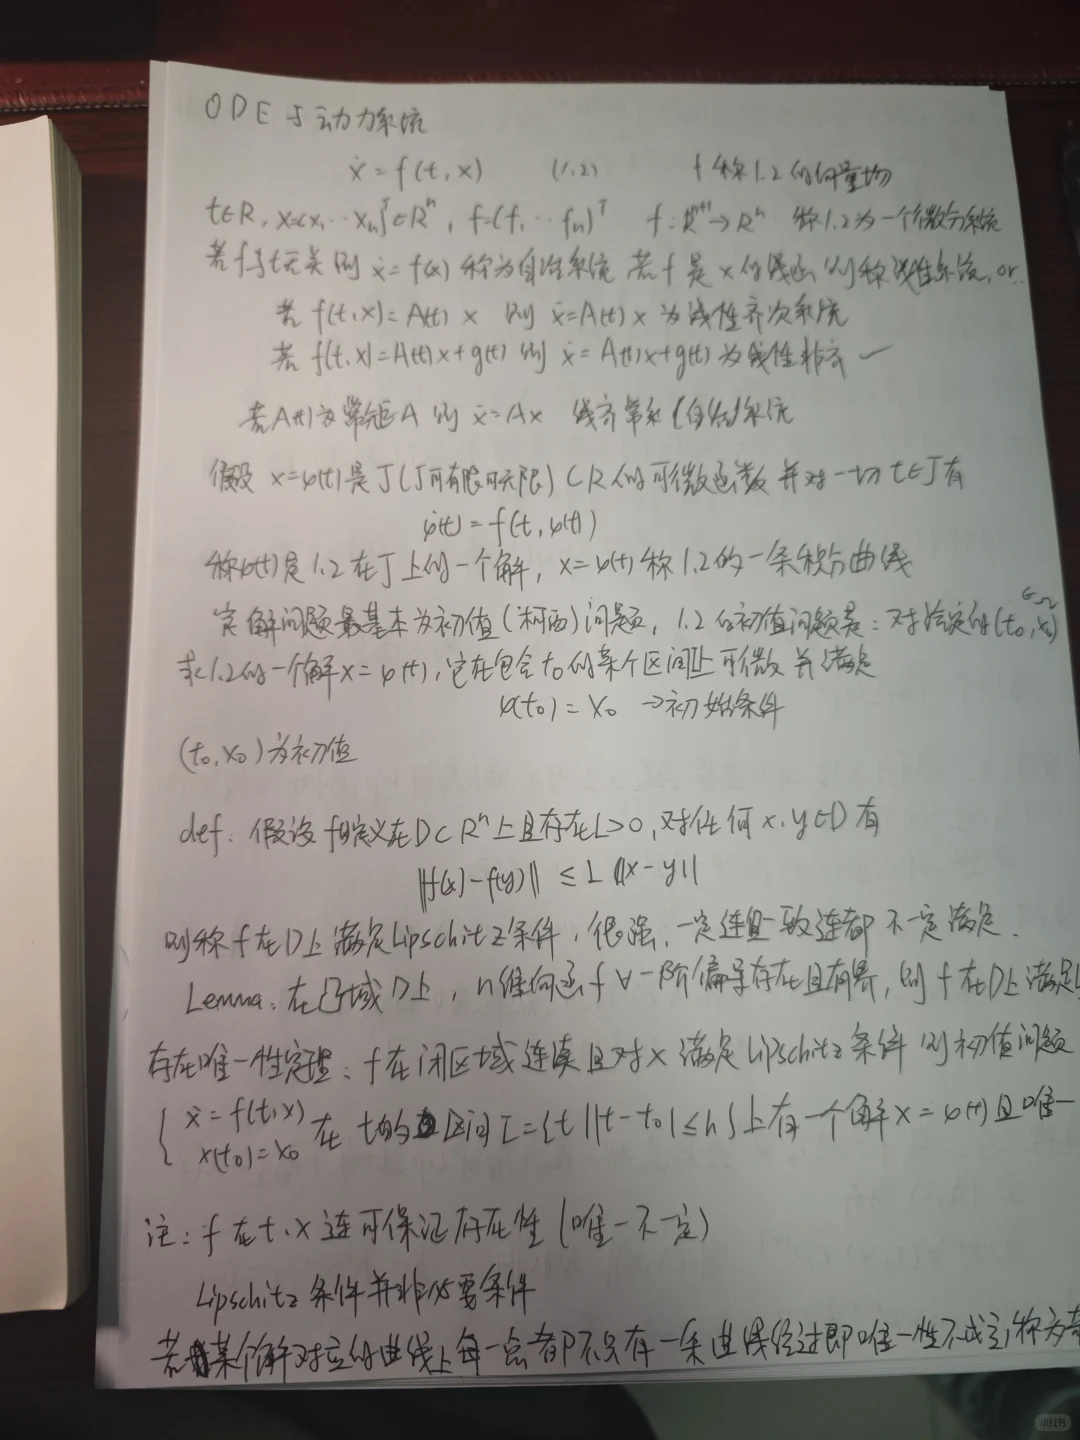 ODE与动力系统
ẋ = f(t,x) (1,2) f称1.2的向量场
t∈R, x=(x₁…xₙ)ᵀ∈Rⁿ, f=(f₁…fₙ)ᵀ f:Rⁿ⁺¹→Rⁿ 称1.2为一个微分系统
若f与t无关则 ẋ=f(x) 称为自治系统 若f是x的线函则称线性系统, or..
若 f(t,x)=A(t)x 则 ẋ=A(t)x 为线性齐次系统
若 f(t,x)=A(t)x+g(t) 则 ẋ=A(t)x+g(t) 为线性非齐
若A(t)为常矩A 则 ẋ=Ax 线齐常系(自治)系统
假设 x=φ(t)是J(J可有限可无限)⊂R的可微函数并对一切t∈J有
φ̇(t)=f(t,φ(t))
称φ(t)是1.2在J上的一个解, x=φ(t)称1.2的一条积分曲线
定解问题最基本为初值(柯西)问题, 1.2的初值问题是:对给定的(t₀,x₀)∈Ω
求1.2的一个解x=φ(t),它在包含t₀的某个区间上可微并满足
φ(t₀)=x₀ →初始条件
(t₀,x₀)为初值
def: 假设f定义在D⊂Rⁿ上且存在L>0,对任何x,y∈D有
||f(x)-f(y)|| ≤ L ||x-y||
则称f在D上满足Lipschitz条件,很强,一定连且一致连都不一定满足.
Lemma: 在凸域D上, n维向函f ∀一阶偏导存在且有界,则f在D上满足L
存在唯一性定理: f在闭区域连续且对x满足Lipschitz条件则初值问题
{ẋ=f(t,x)
x(t₀)=x₀ 在t的区间I={t||t-t₀|≤h}上有一个解x=φ(t)且唯一
注: f在t,x连可保证存在性(唯一不一定)
Lipschitz条件并非必要条件
若某个解对应的曲线上每一点都不只有一条曲线经过即唯一性不成立,称为奇
小红书